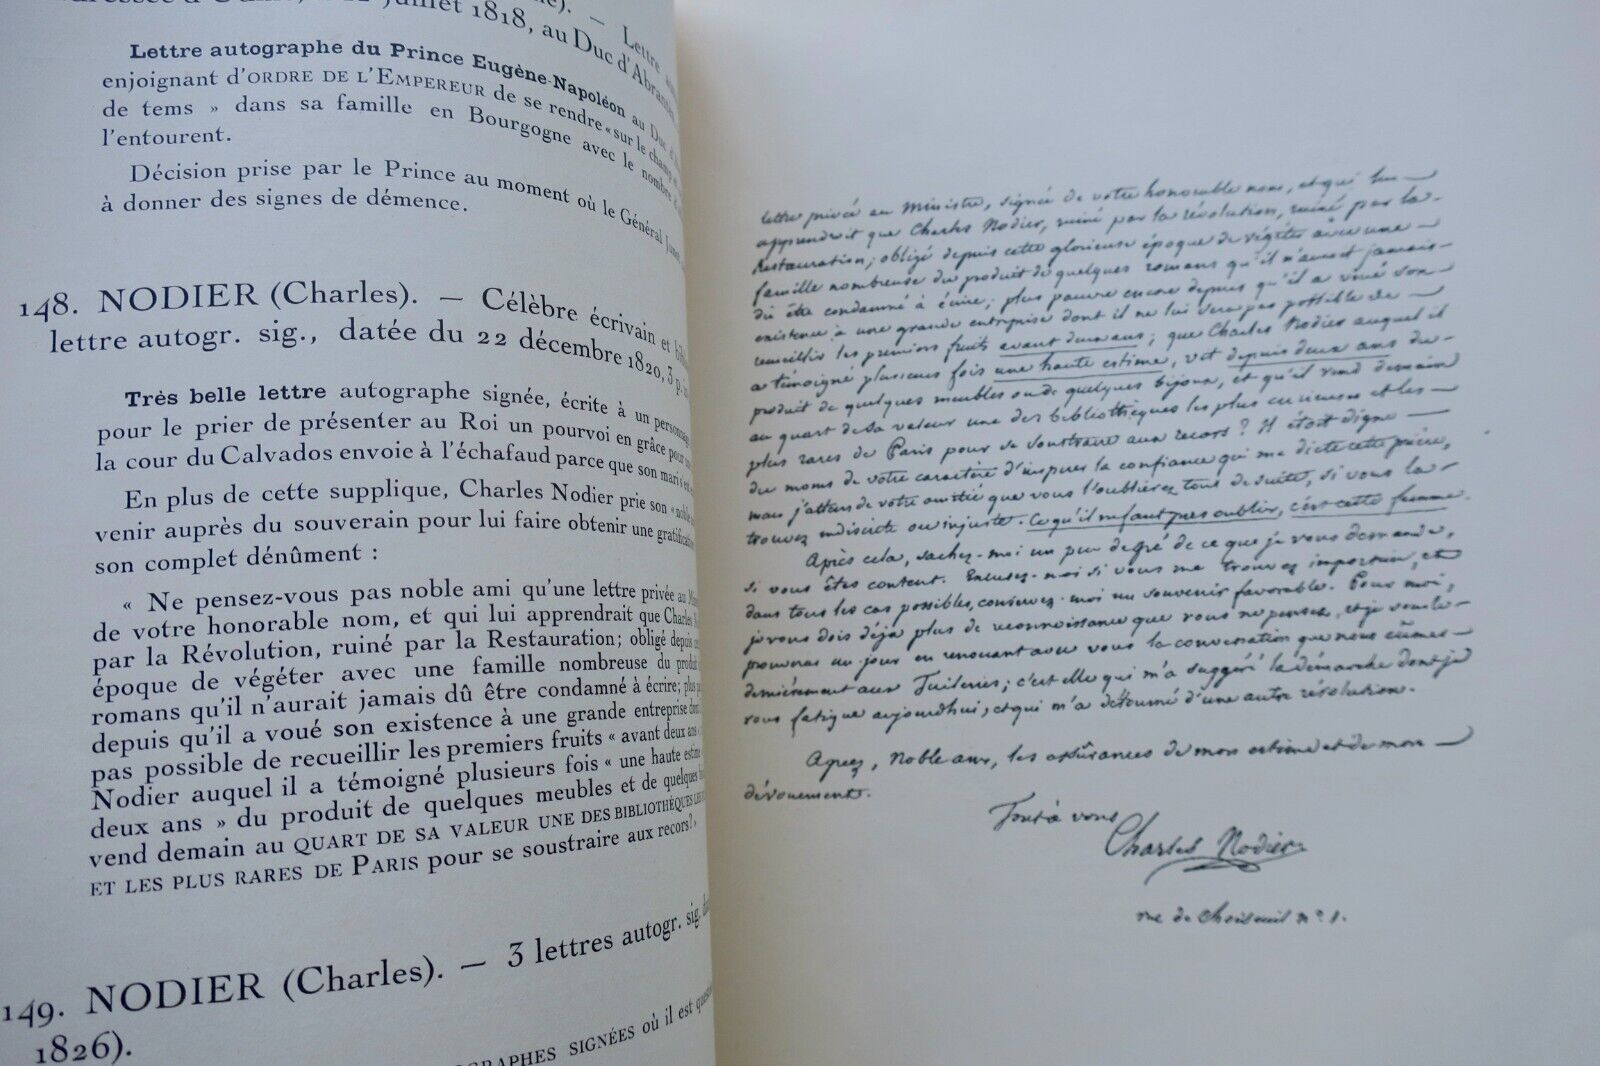 juillet 1818, au Duc d'Abrantès
Lettre autographe du Prince Eugène-Napoléon au Duc
enjoignant d'ORDRE DE L'EMPEREUR de se rendre « sur le champ et
de tems » dans sa famille en Bourgogne avec le nombre
l'entourent.
Décision prise par le Prince au moment où le Général Junot
à donner des signes de démence.
148. NODIER (Charles). — Célèbre écrivain et
lettre autogr. sig., datée du 22 décembre 1820, 3 p.
Très belle lettre autographe signée, écrite à un personnage
pour le prier de présenter au Roi un pourvoi en grâce pour
la cour du Calvados envoie à l'échafaud parce que son mari s'est
En plus de cette supplique, Charles Nodier prie son « noble
venir auprès du souverain pour lui faire obtenir une gratification
son complet dénûment :
« Ne pensez-vous pas noble ami qu'une lettre privée au
de votre honorable nom, et qui lui apprendrait que Charles
par la Révolution, ruiné par la Restauration; obligé depuis
époque de végéter avec une famille nombreuse du produit
romans qu'il n'aurait jamais dû être condamné à écrire; plus
depuis qu'il a voué son existence à une grande entreprise dont
pas possible de recueillir les premiers fruits « avant deux ans »
Nodier auquel il a témoigné plusieurs fois « une haute estime
deux ans » du produit de quelques meubles et de quelques
vend demain au QUART DE SA VALEUR UNE DES BIBLIOTHÈQUES LES
ET LES PLUS RARES DE PARIS pour se soustraire aux recors? »
149. NODIER (Charles). — 3 lettres autogr. sig.
1826).
SIGNÉES où il est
lettre privée au Ministre, signée de votre honorable nom, et qui lui
apprendroit que Charles Nodier, ruiné par la révolution, ruiné par la
Restauration; obligé depuis cette glorieuse époque de végéter avec une
famille nombreuse du produit de quelques romans qu'il n'auroit jamais
dû être condamné à écrire; plus pauvre encore depuis qu'il a voué son
existence à une grande entreprise dont il ne lui sera pas possible de
recueillir les premiers fruits avant deux ans; que Charles Nodier auquel il
a témoigné plusieurs fois une haute estime, vit depuis deux ans du
produit de quelques meubles ou de quelques bijoux, et qu'il vend demain
au quart de sa valeur une des bibliothèques les plus curieuses et les
plus rares de Paris pour se soustraire aux recors? Il étoit digne
du moins de votre caractère d'inspirer la confiance qui me dicte cette prière,
mais j'attens de votre amitié que vous l'oublierez tout de suite, si vous la
trouvez indiscrète ou injuste. Ce qu'il ne faut pas oublier, c'est cette femme.
Après cela, sachez-moi un peu de gré de ce que je vous demande,
si vous êtes content. Excusez-moi si vous me trouvez importun, et
dans tous les cas possibles, conservez-moi un souvenir favorable. Pour moi,
je vous dois déjà plus de reconnoissance que vous ne pensez, et je vous le
prouverai un jour en renouant avec vous la conversation que nous eûmes
dernièrement aux Tuileries; c'est elle qui m'a suggéré la démarche dont je
vous fatigue aujourdhui, et qui m'a détourné d'une autre révolution.
Agréez, Noble ami, les assurances de mon estime et de mon
dévouement.
Tout à vous
Charles Nodier
rue de Choiseuil n° 1.